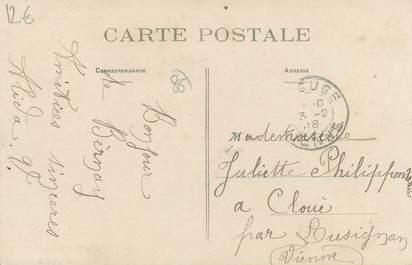 12€
CARTE POSTALE
CORRESPONDANCE
ADRESSE
88
Bonjour
de Béruges
Amitiés sincères
Alida
10
3 -2
18
Mademoiselle
Juliette Philippon
a Cloué
par Lusignan
Vienne